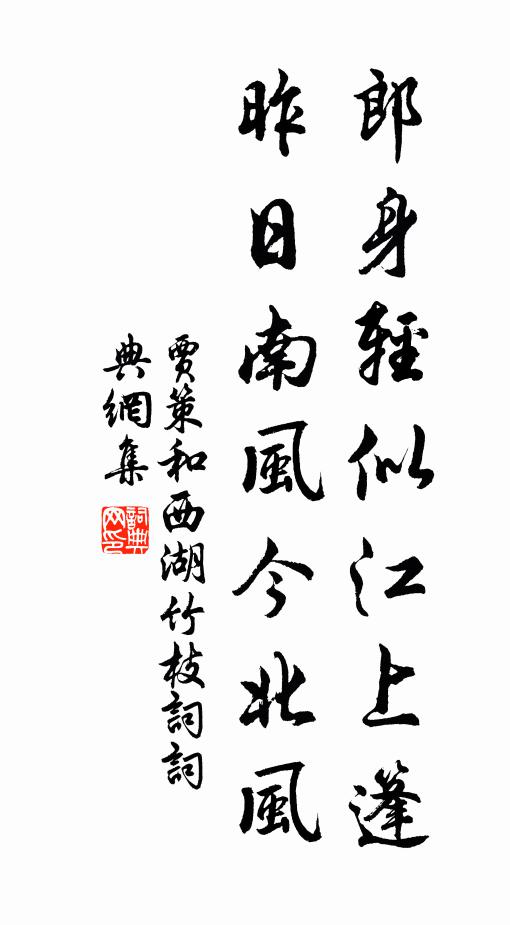 郎身輕似江上篷
昨日南風今北風
賈策和西湖竹枝詞詞
典網集
詞典
网印